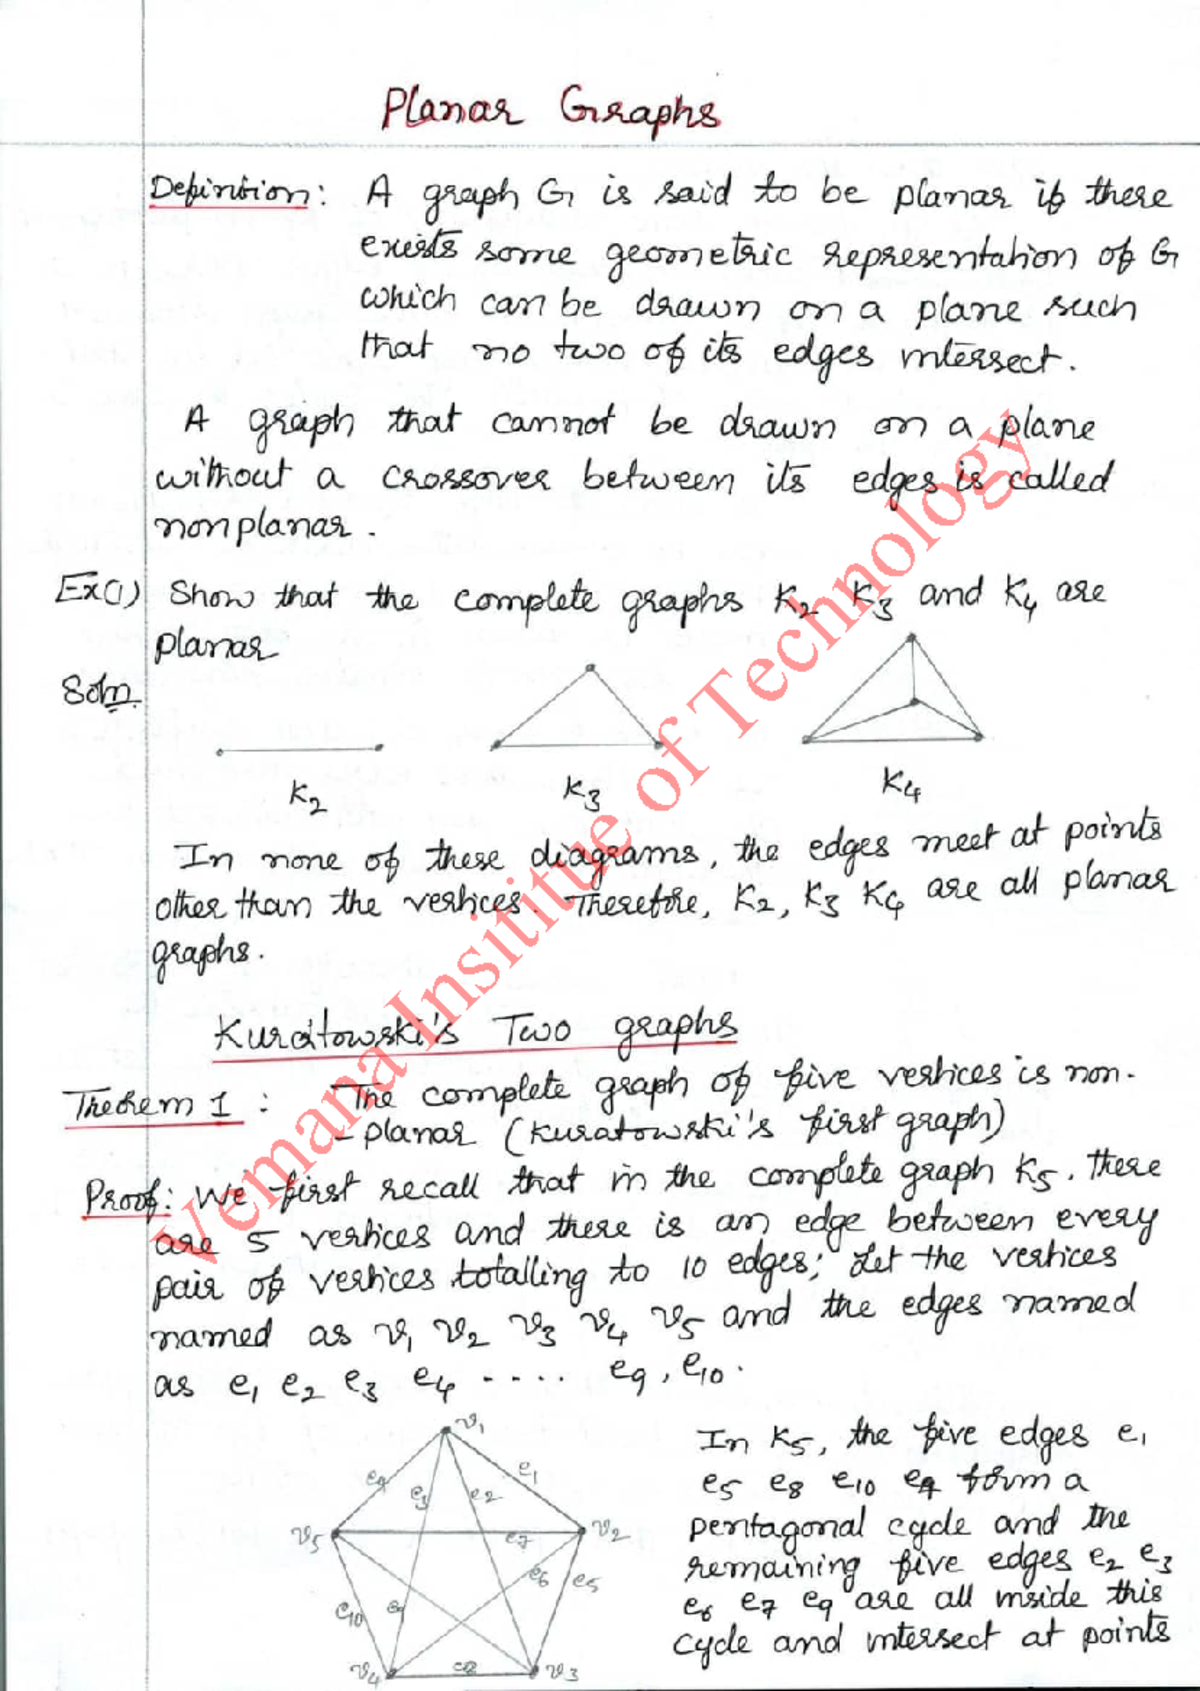 Planar Graphs
Definition: A graph G is said to be planar if there
exists some geometric representation of G
which can be drawn on a plane such
that no two of its edges intersect.
A graph that cannot be drawn on a plane
without a crossover between its edges is called
nonplanar.
Ex(1) Show that the complete graphs K2 K3 and K4 are
planar
Soln.
K2 K3 K4
In none of these diagrams, the edges meet at points
other than the vertices. Therefore, K2, K3 K4 are all planar
graphs.
Kuratowski's Two graphs
Theorem 1 : The complete graph of five vertices is non-
- planar (Kuratowski's first graph)
Proof: We first recall that in the complete graph K5. There
are 5 vertices and there is an edge between every
pair of vertices totalling to 10 edges; Let the vertices
named as v1 v2 v3 v4 v5 and the edges named
as e1 e2 e3 e4 .... e9, e10.
In K5, the five edges e1
e5 e8 e10 e4 form a
pentagonal cycle and the
remaining five edges e2 e3
e6 e7 e9 are all inside this
cycle and intersect at points
v1
e1
e3 e2
v5 v2
e7
e6 e5
e10
v4 e8 v3
Vemana Insititue of Technology